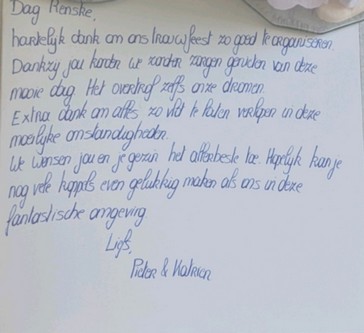 Dag Renske,
hartelijk dank om ons trouwfeest zo goed te organiseren.
Dankzij jou konden we zonder zorgen genieten van deze
mooie dag. Het overtrof zelfs onze dromen.
Extra dank om alles zo vlot te laten verlopen in deze
moeilijke omstandigheden.
We wensen jou en je gezin het allerbeste toe. Hopelijk kan je
nog vele koppels even gelukkig maken als ons in deze
fantastische omgeving
Liefs,
Pieter & Katrien